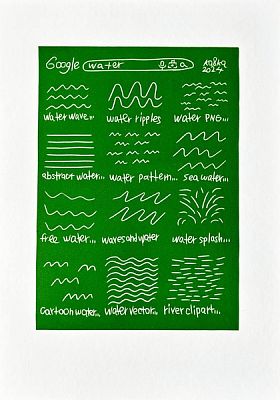 Google water
2024
water wave... water ripples water PNG...
abstract water... water pattern... sea water...
free water... waves and water water splash...
cartoon water... water vector... river clipart...